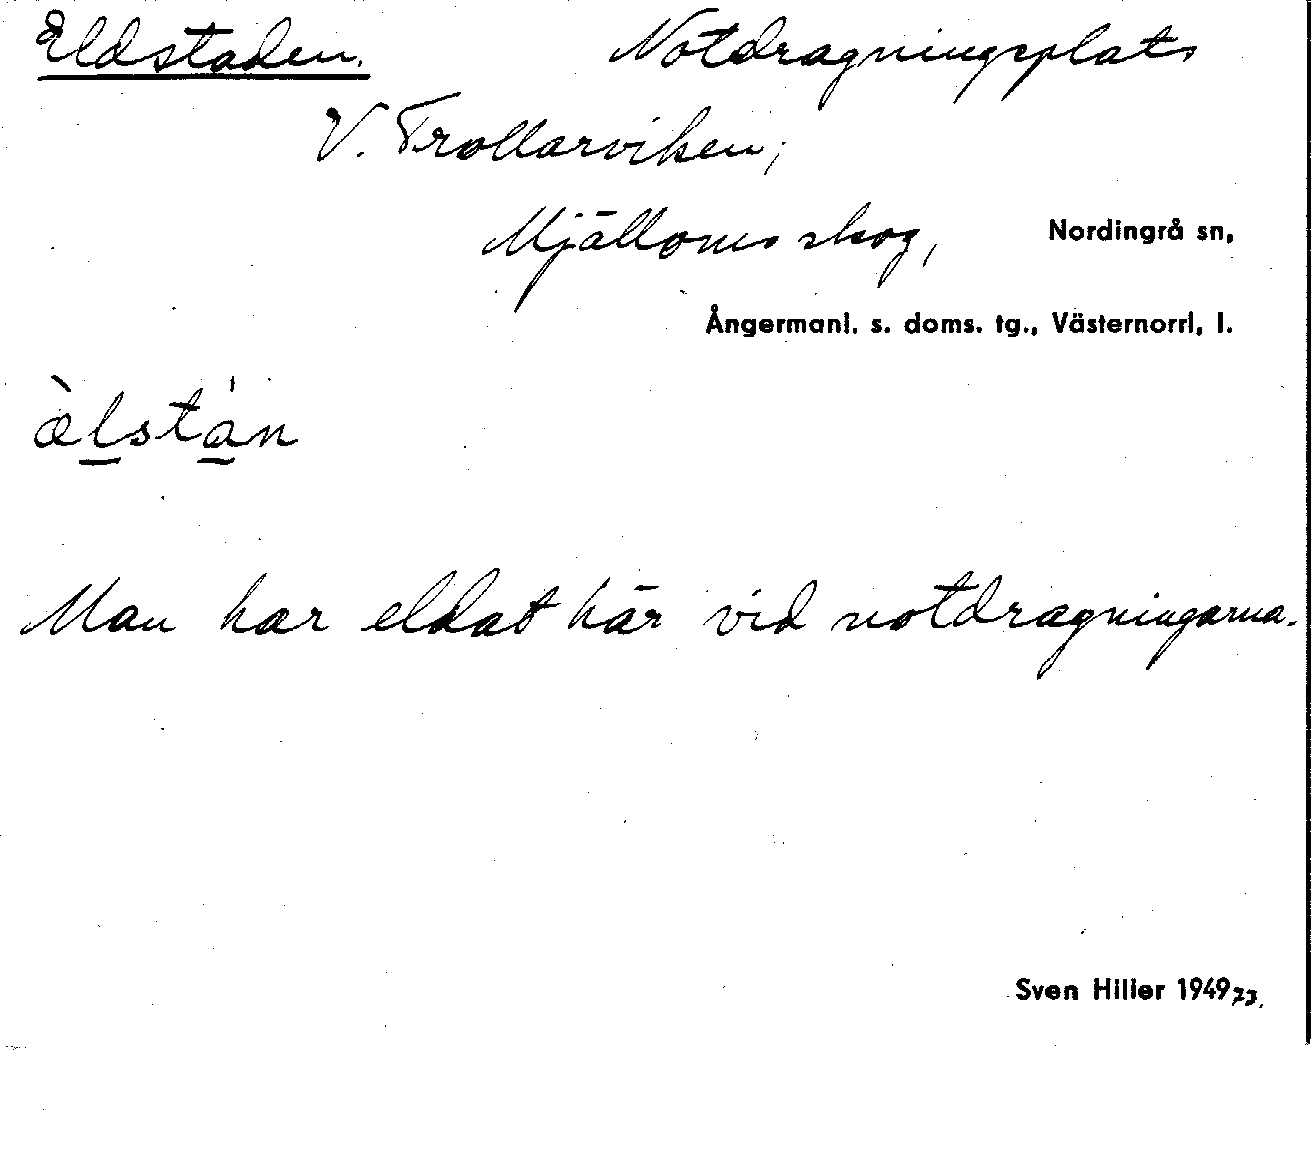 Eldstaden. Notdragningsplats
V. Trollarviken,
Mjälloms skog, Nordingrå sn,
Ångermanl. s. doms. tg., Västernorrl, l.
æ̀lstá̱n
Man har eldat här vid notdragningarna.
Sven Hiller 1949